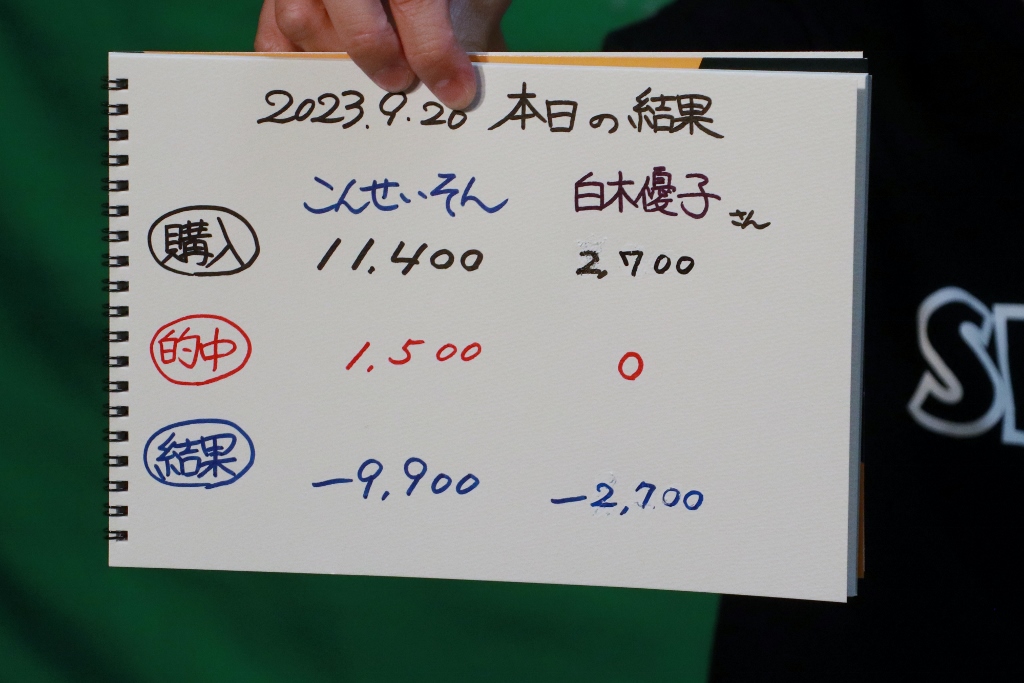 2023.9.20 本日の結果
こんせいそん 白木優子さん
購入 11.400 2,700
的中 1.500 0
結果 -9,900 -2,700